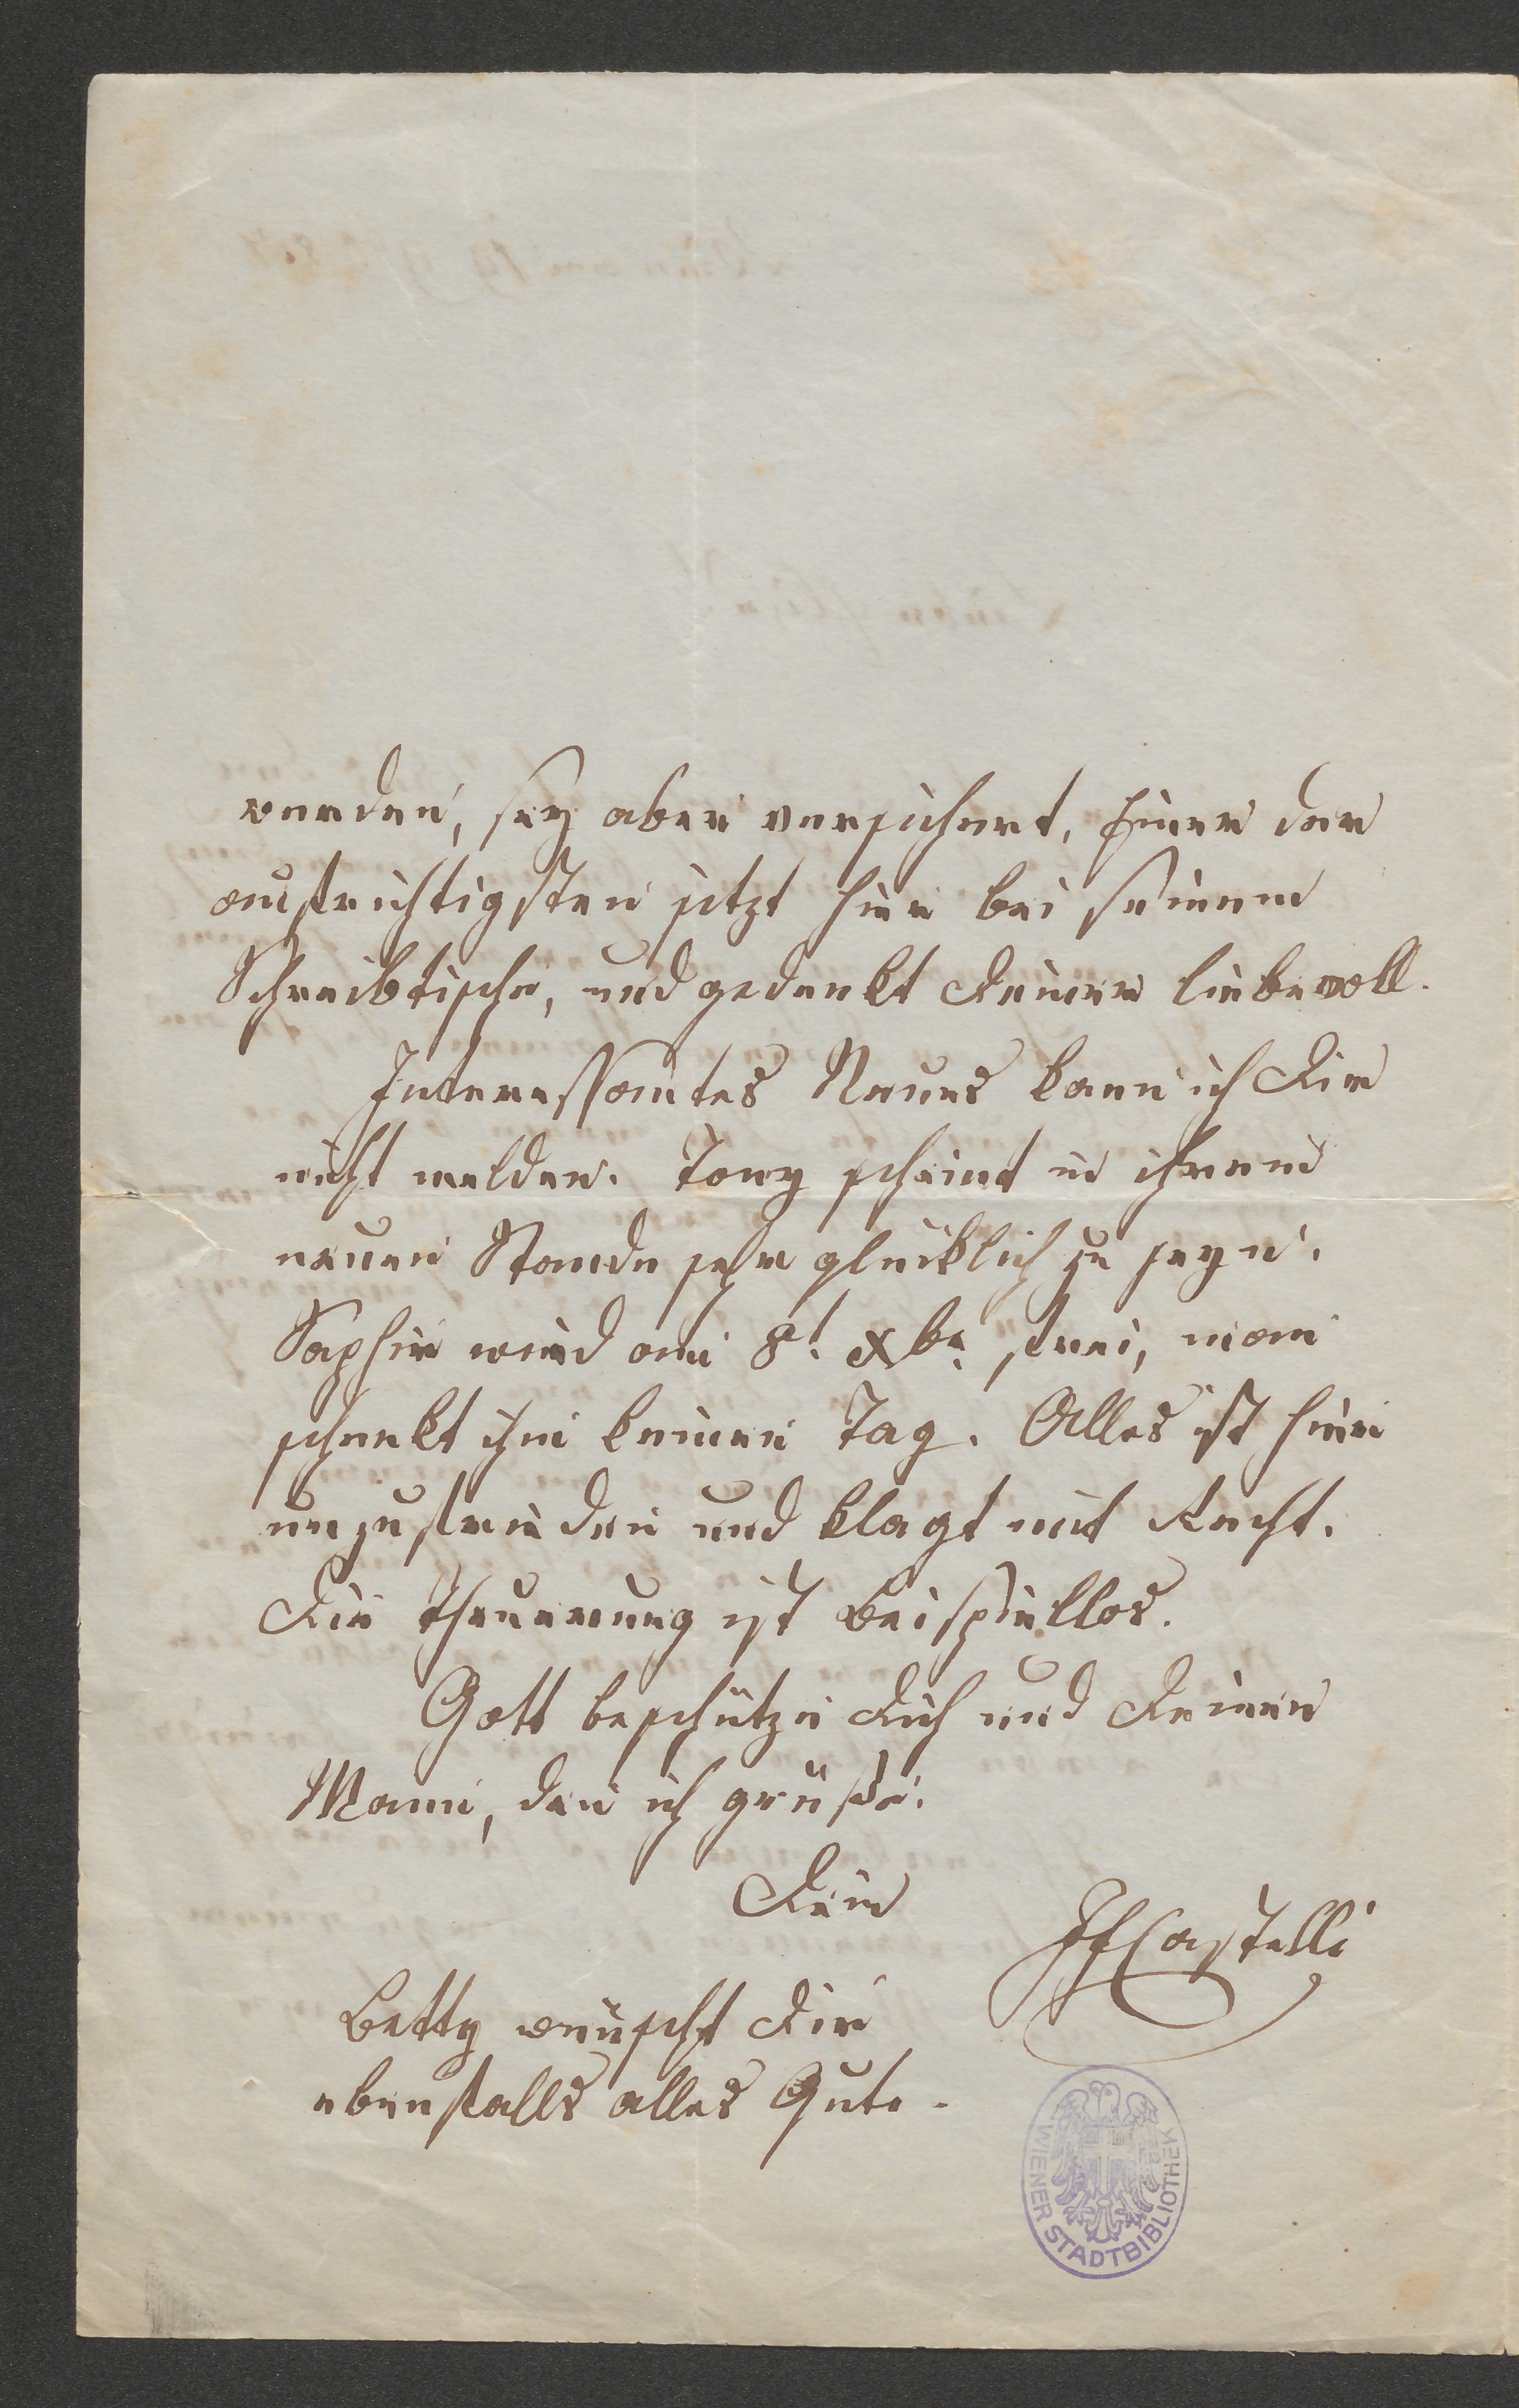 werden, sey aber versichert, Einer der
aufrichtigsten sitzt hier bei seinem
Schreibtische, und gedenkt Deiner liebevoll.
Interessantes Neues kann ich Dir
nicht melden. Tony scheint in ihrem
neuen Stande sehr glücklich zu seyn.
Saphir wird am 8t. Xbr. frei, man
schenkt ihm keinen Tag. Alles ist hier
unzufrieden und klagt mit Recht.
Die Theuerung ist beispiellos.
Gott beschütze Dich und Deinen
Mann, den ich grüße.
Dein
IFCastelli
Betty wünscht Dir
ebenfalls alles Gute.
WIENER STADTBIBLIOTHEK